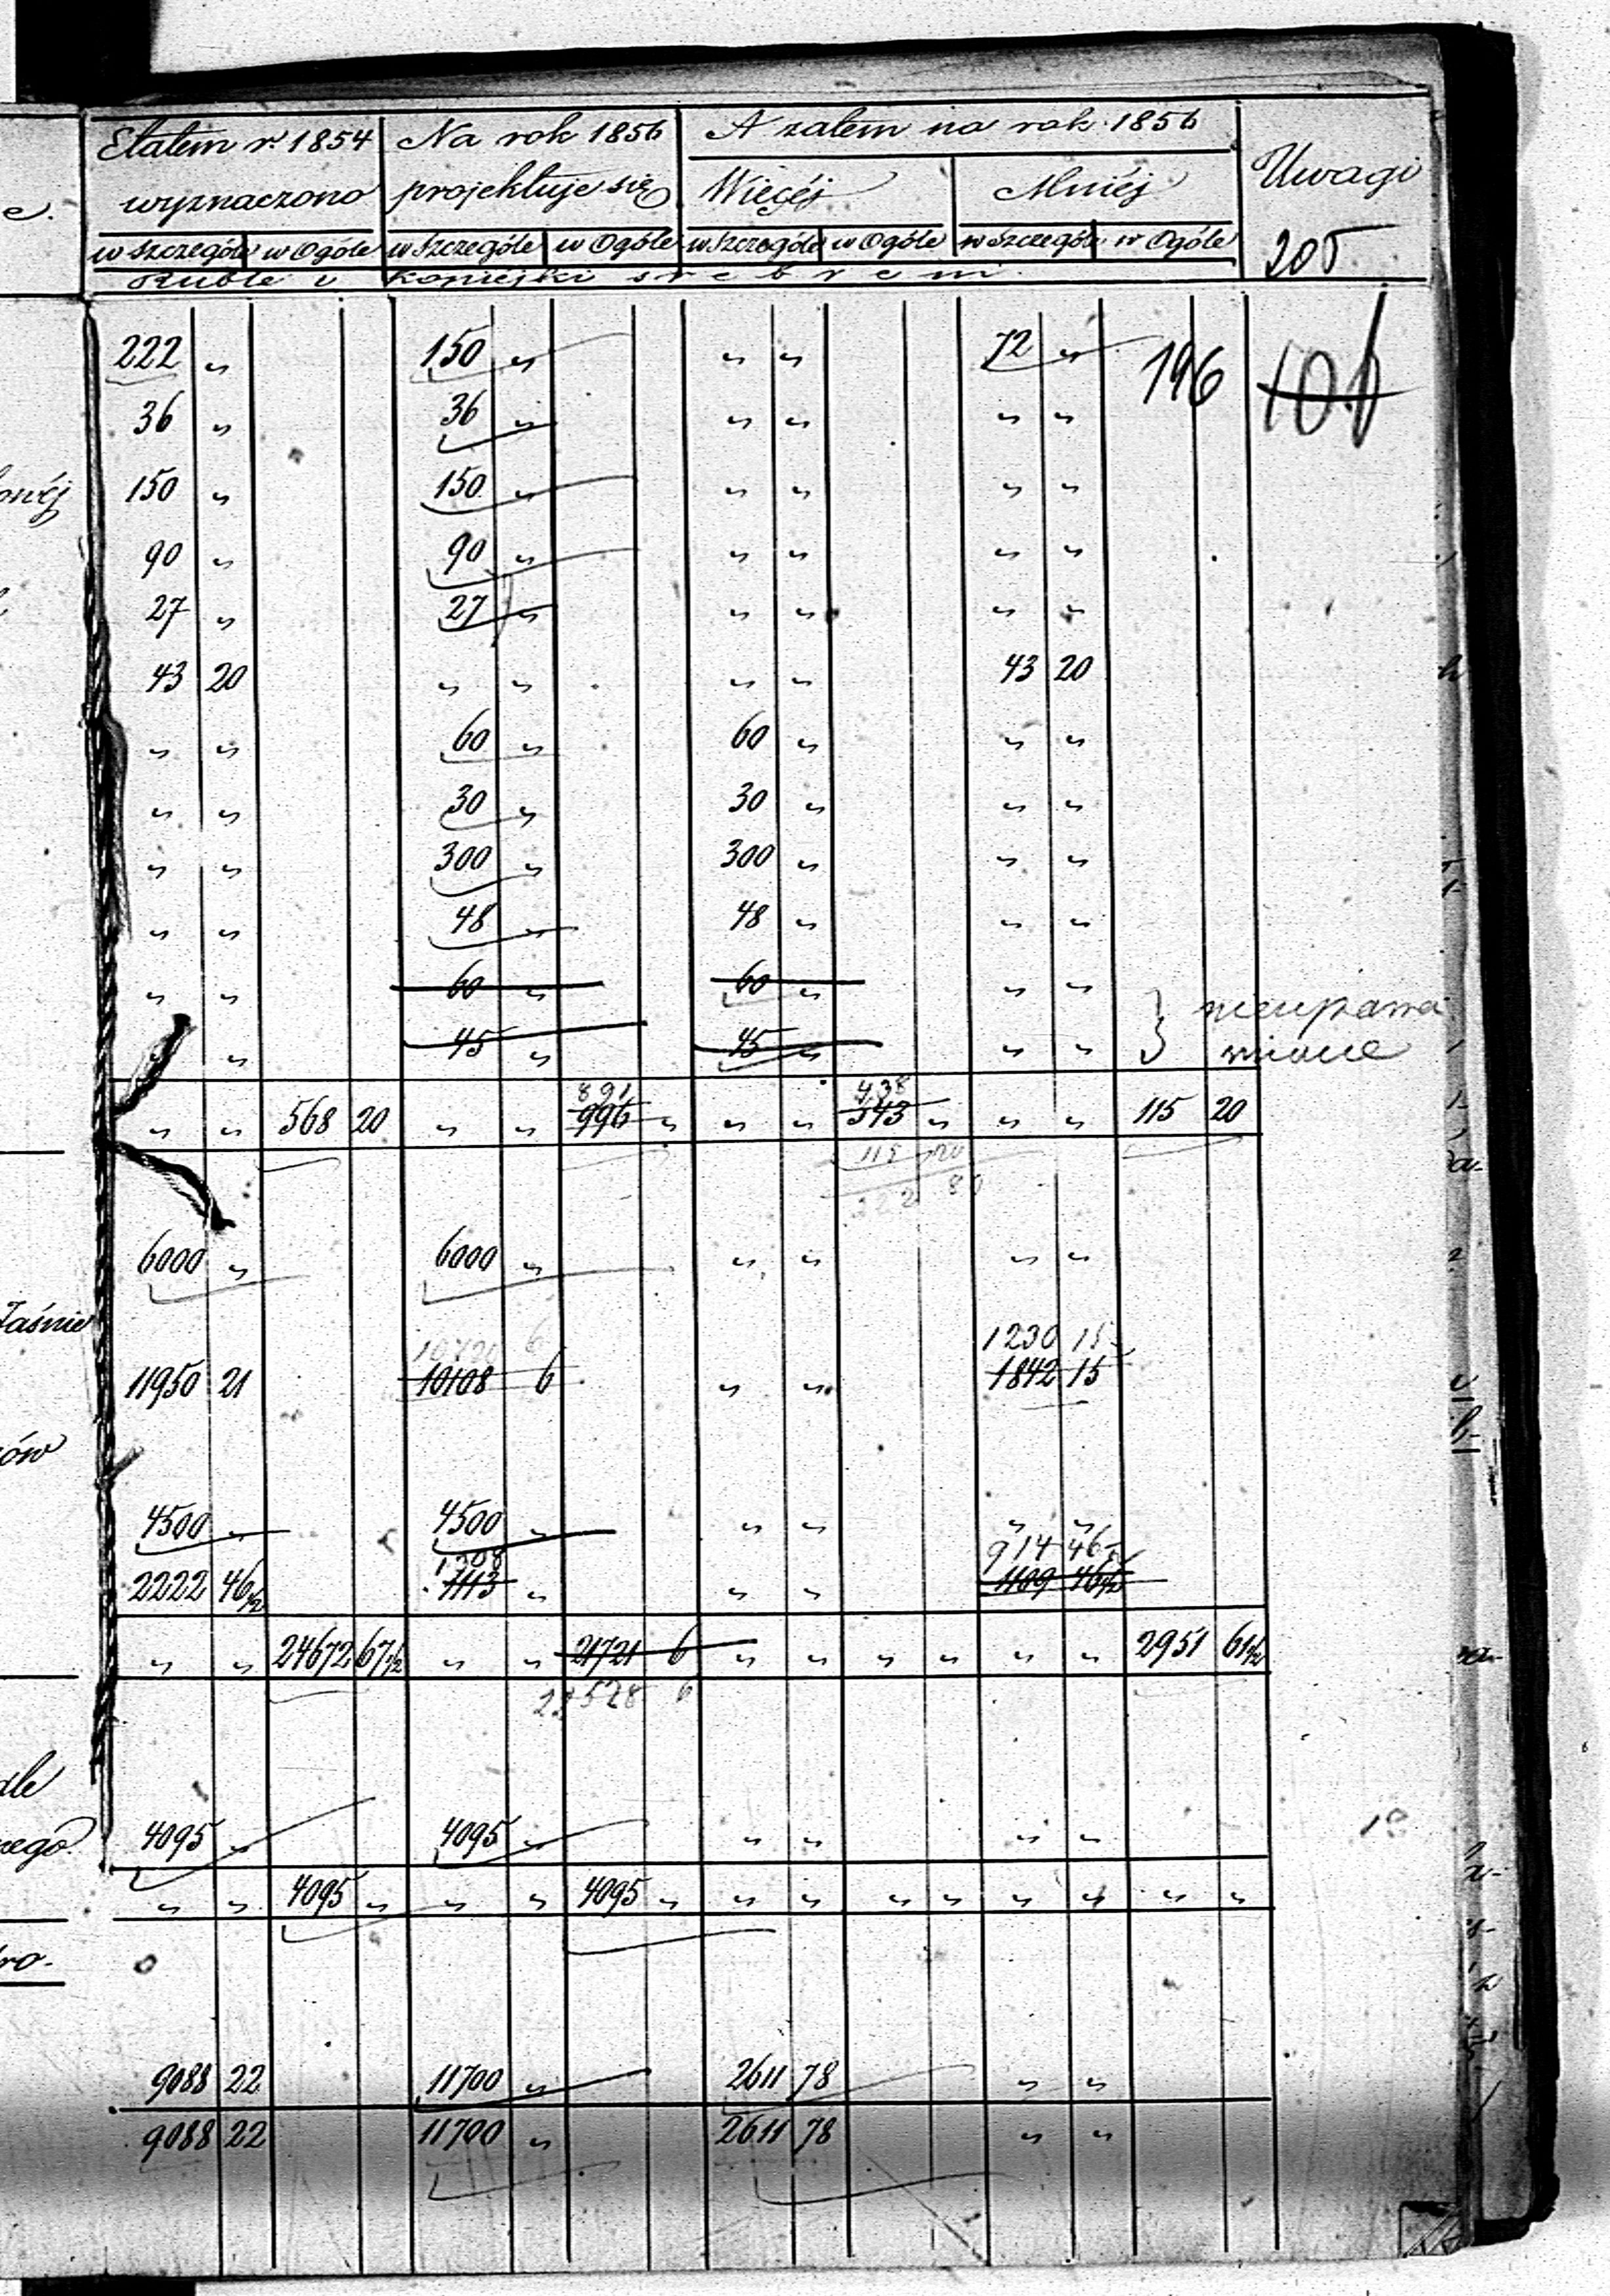 Etatem r. 1854 Na rok 1856 A zatem na rok 1856 Uwagi
wyznaczono projektuje się Więcéj Mniéj
w szczególe w Ogóle w Szczególe w Ogóle w szczególe w Ogóle w szczególe w Ogóle 205
Ruble i Kopiejki srebrem
222 „ 150 „ „ „ 72 „ 196 106
36 „ 36 „ „ „ „ „
150 „ 150 „ „ „ „ „
90 „ 90 „ „ „ „ „
27 „ 27 „ „ „ „ „
43 20 „ „ „ „ 43 20
„ „ 60 „ 60 „ „ „
„ „ 30 „ 30 „ „ „
„ „ 300 „ 300 „ „ „
„ „ 48 „ 48 „ „ „
„ „ 60 „ 60 „ „ „
„ „ 45 „ 45 „ „ „
891 438
„ „ 568 20 „ „ 996 „ „ „ 543 „ „ „ 115 20
115 20
322 80
6000 „ 6000 „ „ „ „ „
Jaśnie
10720 6 1230 15
11950 21 10108 6 „ „ 1842 15
ów
4500 „ 4500 „ „ „ „ „
1308 914 46
2222 46½ 1113 „ „ „ 1109 46½
„ „ 24672 67½ „ „ 21721 6 „ „ „ „ „ „ 2951 61½
22528 6
4095 „ 4095 „ „ „ „ „
„ „ 4095 „ „ „ 4095 „ „ „ „ „ „ „ „ „
9088 22 11700 „ 2611 78 „ „
9088 22 11700 „ 2611 78 „ „